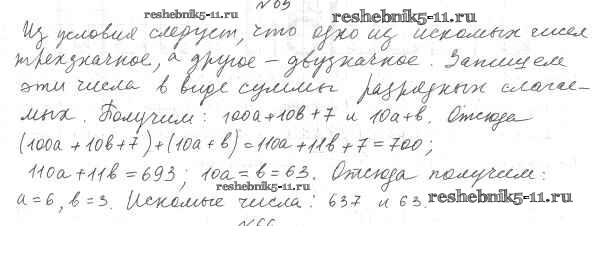 №65
reshebnik5-11.ru reshebnik5-11.ru
Из условия следует, что одно из искомых чисел
трехзначное, а другое – двузначное. Запишем
эти числа в виде суммы разрядных слагае-
мых. Получим: 100a+10в+7 и 10a+в. Отсюда
(100a+10в+7)+(10a+в)=110a+11в+7=700;
110a+11в=693; 10a=в=63. Отсюда получим:
reshebnik5-11.ru
a=6, в=3. Искомые числа: 637 и 63. reshebnik5-11.ru